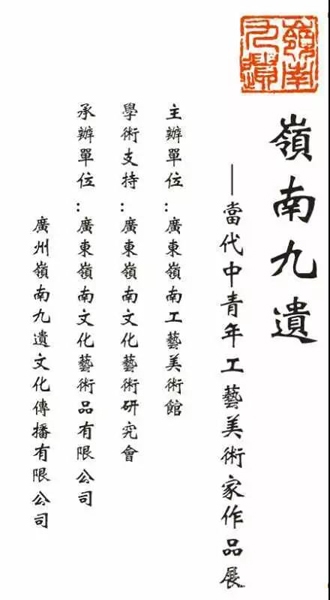 嶺南九遺
嶺南九遺
——當代中青年工藝美術家作品展
主辦單位：廣東嶺南工藝美術館
學術支持：廣東嶺南文化藝術研究會
承辦單位：廣東嶺南文化藝術品有限公司
廣州嶺南九遺文化傳播有限公司